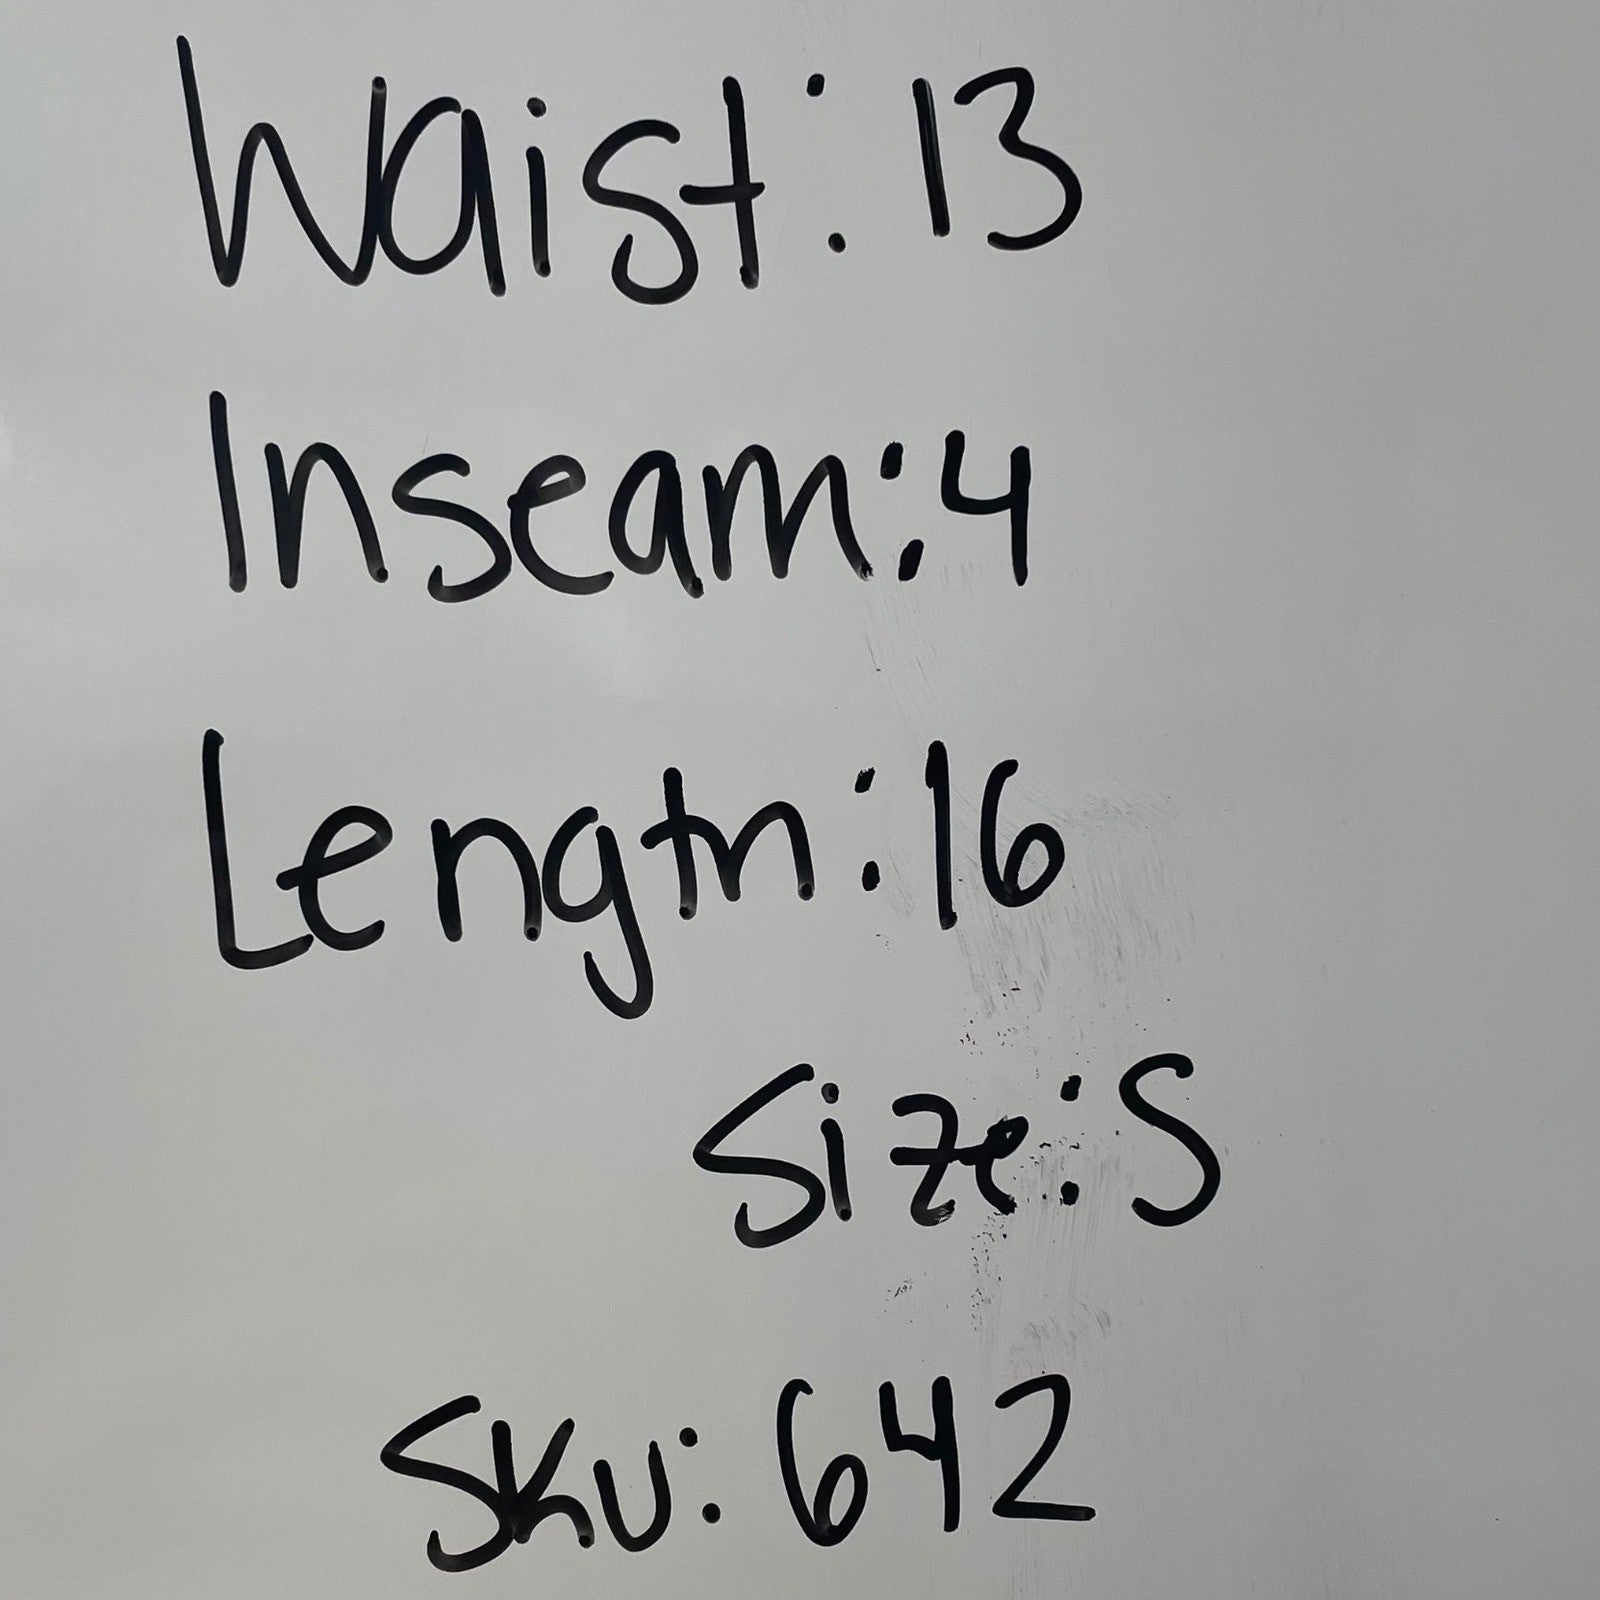 Waist: 13
Inseam: 4
Length: 16
Size: S
SKU: 642